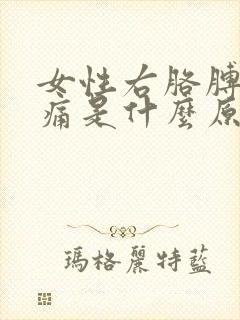 女性右胳膊
痛是什麼原
瑪格麗特藍